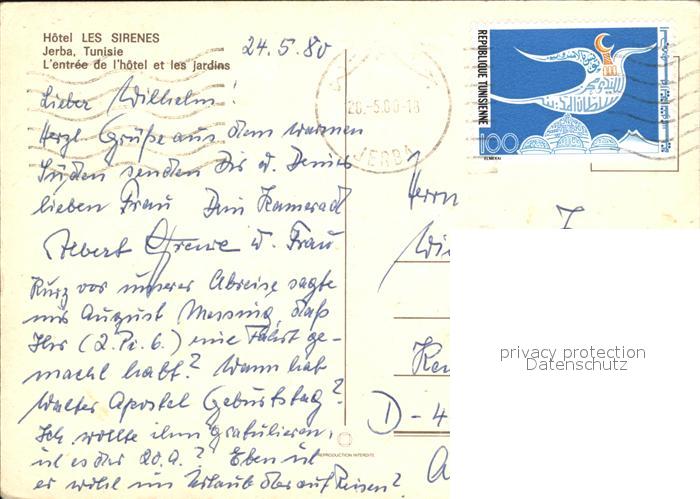 Hôtel LES SIRENES
Jerba, Tunisie
L'entrée de l'hôtel et les jardins
24.5.80
Lieber Wilhelm!
Herzl. Grüße aus dem warmen
Süden senden Dir u. Deiner
lieben Frau Dein Kamerad
Albert u. Frau
Kurz vor unserer Abreise sagte
mir August Messing, daß
Ihr (2. Pi. 6.) eine Fahrt ge-
macht habt? Wann hat
Walter Apostel Geburtstag?
Ich wollte ihm gratulieren,
ist es der 20.9.? Eben ist
er wohl im Urlaub oder auf Reisen?
REPRODUCTION INTERDITE
JERBA
REPUBLIQUE TUNISIENNE
100
ELMEKKI
Herrn
D-4
privacy protection
Datenschutz